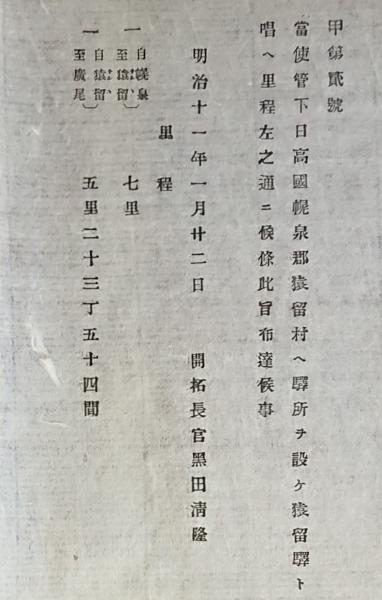 甲第貳號
當使管下日高國幌泉郡猿留村ヘ驛所ヲ設ケ猿留驛ト
唱ヘ里程左之通ニ候條此旨布達候事
明治十一年一月廿二日 開拓長官黑田淸隆
里程
一 自幌泉 至猿留 七里
一 自猿留 至廣尾 五里二十三丁五十四間